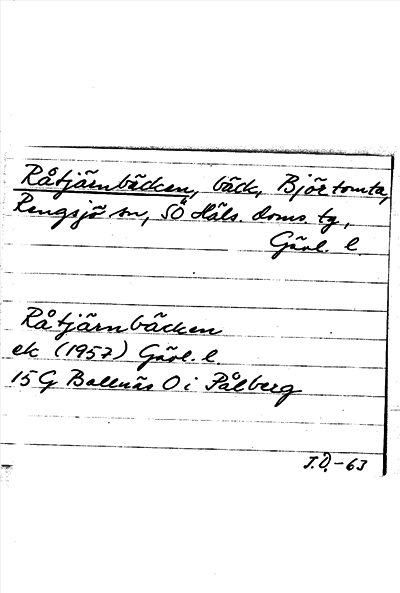 Råtjärnbäcken, bäck, Björtomta,
Rengsjö sn, SÖ Häls. doms. tg,
Gävl. l.
Råtjärnbäcken
ek (1957) Gävl. l.
15G Bollnäs O i Pålberg
J.Ö.-63